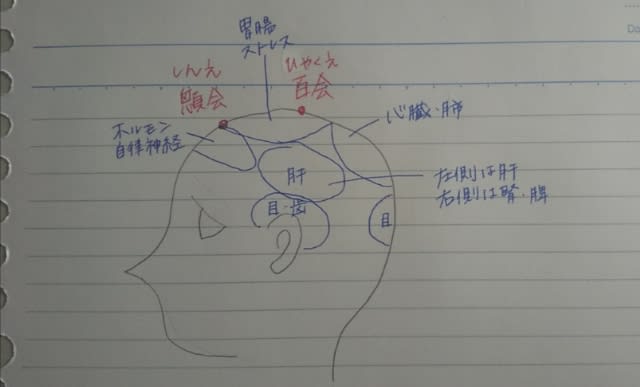 胃腸
ストレス
しんえ
顖会
ひゃくえ
百会
ホルモン
自律神経
心臓・肺
肝
左側は肝
右側は腎・脾
目・歯
目